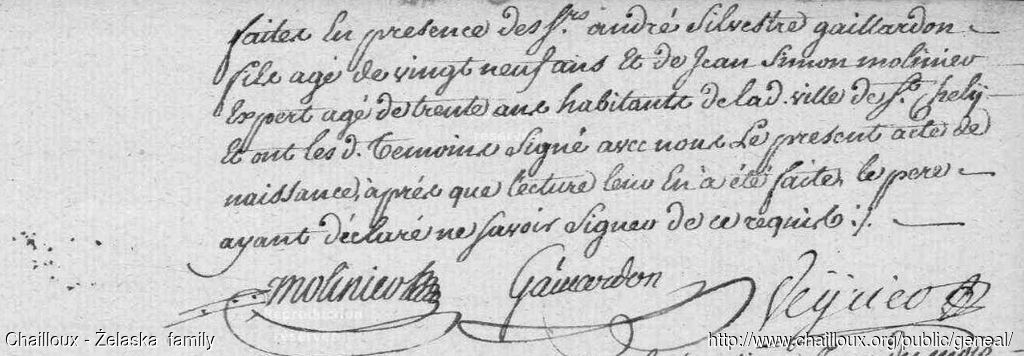 faites En presence des Srs. andré Silvestre gaillardon
fils agé de vingt neuf ans Et de Jean Simon molinier
Expert agé de trente ans habitants de lad. ville de St. Chely
Et ont les d. Temoins Signé avec nous Le present acte de
naissance, après que lecture leur En a été faite, le pere
ayant déclaré ne Savoir Signer de ce requis ./.
molinier Gaillardon Veyrier
Reproduction
reservée
Chailloux - Żelaska family http://www.chailloux.org/public/geneal/